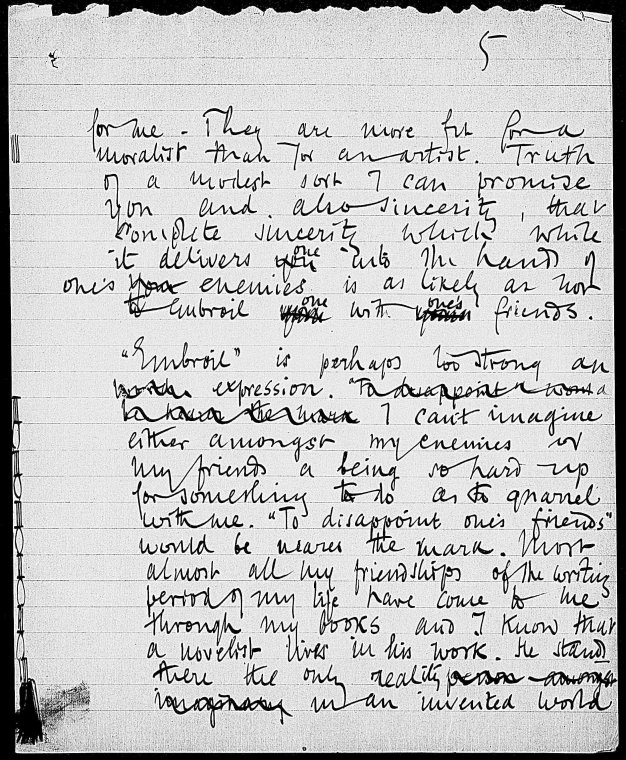 5
for me - They are more fit for a
moralist than for an artist. Truth
of a modest sort I can promise
you and also sincerity, that
complete sincerity which while
it delivers one into the hands of
one's enemies is as likely as not
to embroil one with one's friends.
"Embroil" is perhaps too strong an
expression. "To disappoint would
the mark I can't imagine
either amongst my enemies or
my friends a being so hard up
for something to do as to quarrel
with me. "To disappoint one's friends"
would be nearer the mark. Most
almost all my friendships of the writing
period of my life have come to me
through my books and I know that
a novelist lives in his work. He stands
there the only reality person amongst
imaginary in an invented world